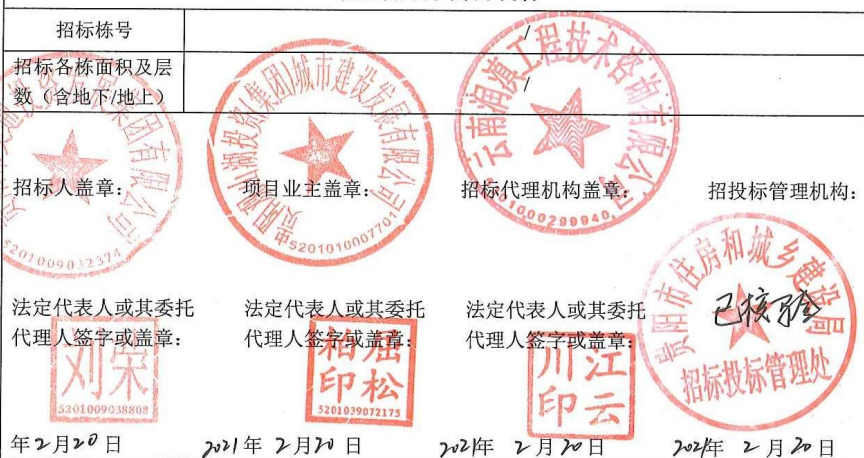 招标栋号 /
招标各栋面积及层
数（含地下/地上） /
招标人盖章：
项目业主盖章：
招标代理机构盖章：
招投标管理机构：
集团有限公司
5201009032374
贵阳观山湖投资(集团)城市建设发展有限公司
5201010007701
云南润滇工程技术咨询有限公司
贵阳市住房和城乡建设局
已核验
招标投标管理处
法定代表人或其委托
代理人签字或盖章：
法定代表人或其委托
代理人签字或盖章：
法定代表人或其委托
代理人签字或盖章：
刘荣
5201009038808
屈松
柏印
5201039072175
江云
川印
年2月20日
2021年 2月20日
2021年 2月20日
2021年 2月20日